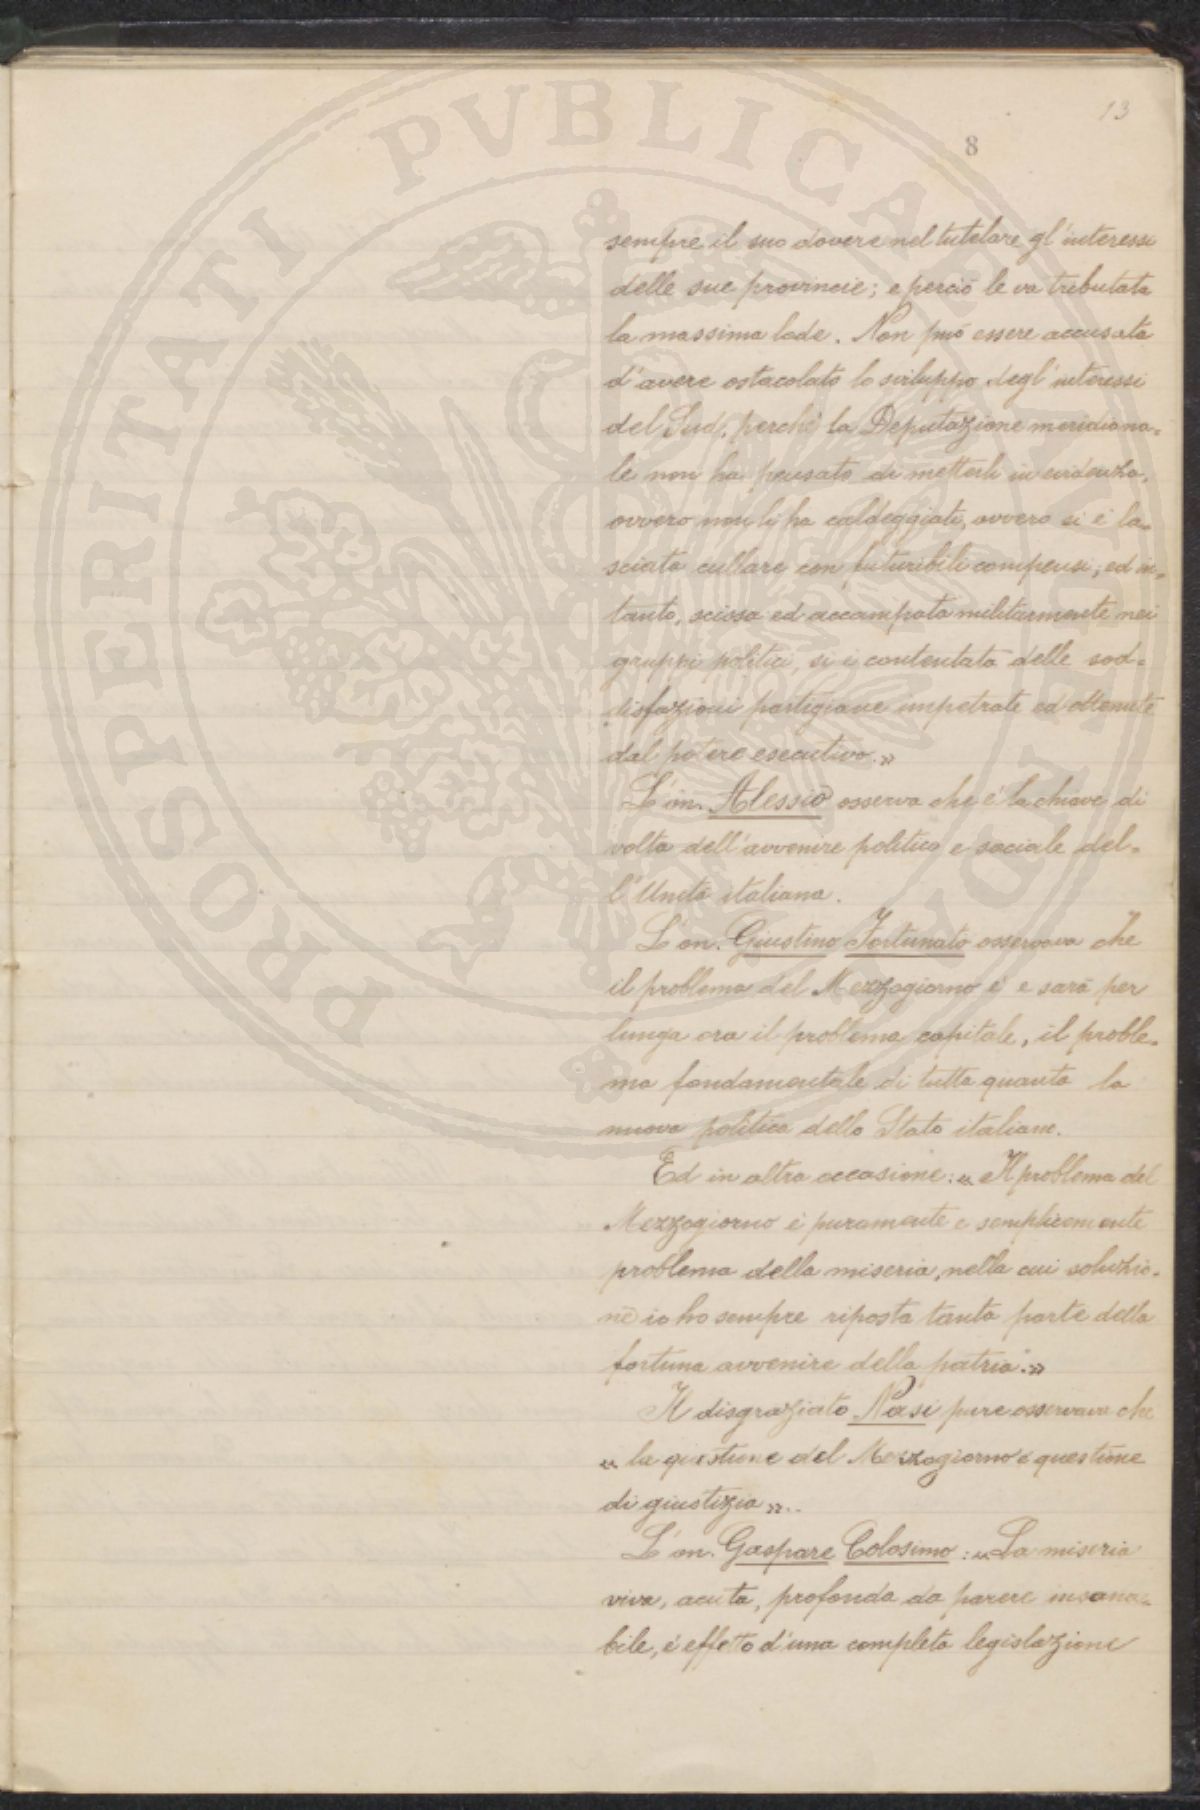 13
8
sempre il suo dovere nel tutelare gl'interessi
delle sue provincie; e perciò le va tributata
la massima lode. Non può essere accusata
d'avere ostacolato lo sviluppo degl'interessi
del Sud, perchè la Deputazione meridiona=
le non ha pensato di metterli in evidenza,
ovvero non li ha caldeggiati, ovvero si è la=
sciata cullare con futuribili compensi; ed in=
tanto, scissa ed accampata militarmente nei
gruppi politici, si è contentata delle sod=
disfazioni partigiane impetrate ed ottenute
dal potere esecutivo.»
L'on. Alessio osserva che è la chiave di
volta dell'avvenire politico e sociale del=
l'Unità italiana.
L'on. Giustino Fortunato osservava che
il problema del Mezzogiorno è e sarà per
lunga ora il problema capitale, il proble=
ma fondamentale di tutta quanta la
nuova politica dello Stato italiano.
Ed in altra occasione: « Il problema del
Mezzogiorno è puramente e semplicemente
problema della miseria, nella cui soluzio=
ne io ho sempre riposta tanta parte della
fortuna avvenire della patria.»
Il disgraziato Nasi pure osservava che
« la questione del Mezzogiorno è questione
di giustizia »..
L'on. Gaspare Colosimo: « La miseria
viva, acuta, profonda da parere insana=
bile, è effetto d'una completa legislazione
PROSPERITATI PVBLICAE AVGENDAE